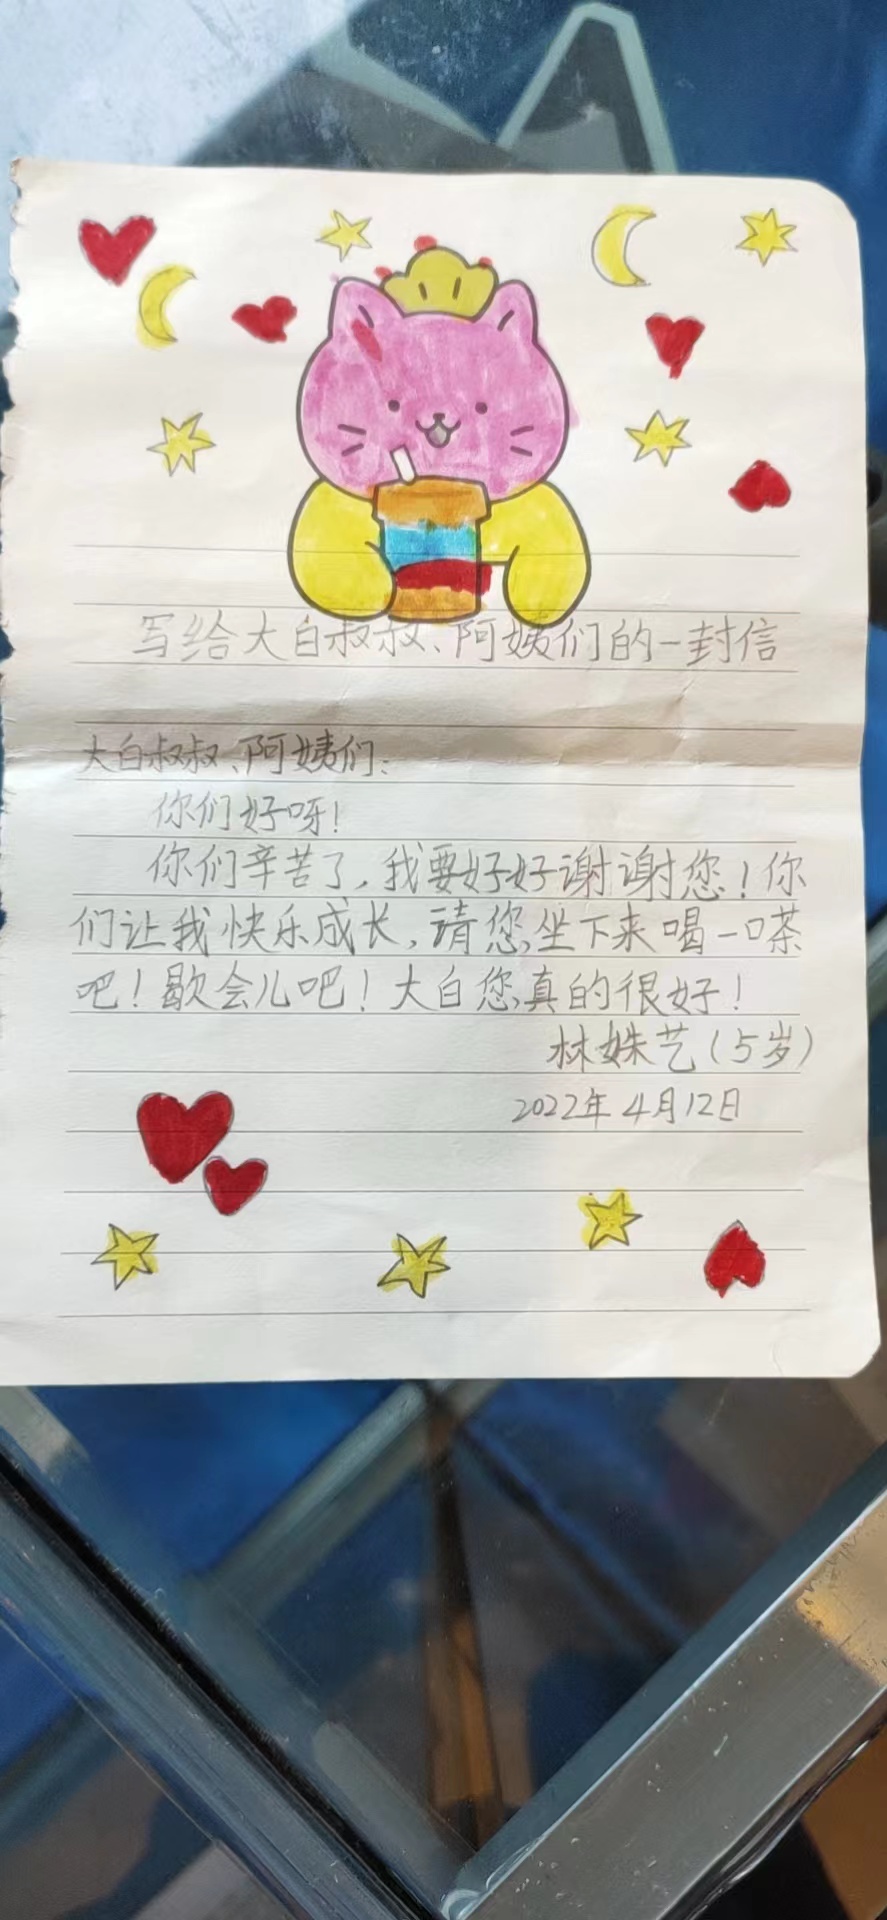 写给大白叔叔、阿姨们的一封信
大白叔叔、阿姨们:
你们好呀!
你们辛苦了,我要好好谢谢您!你
们让我快乐成长,请您,坐下来喝一口茶
吧!歇会儿吧!大白您,真的很好!
林姝艺(5岁)
2022年4月12日